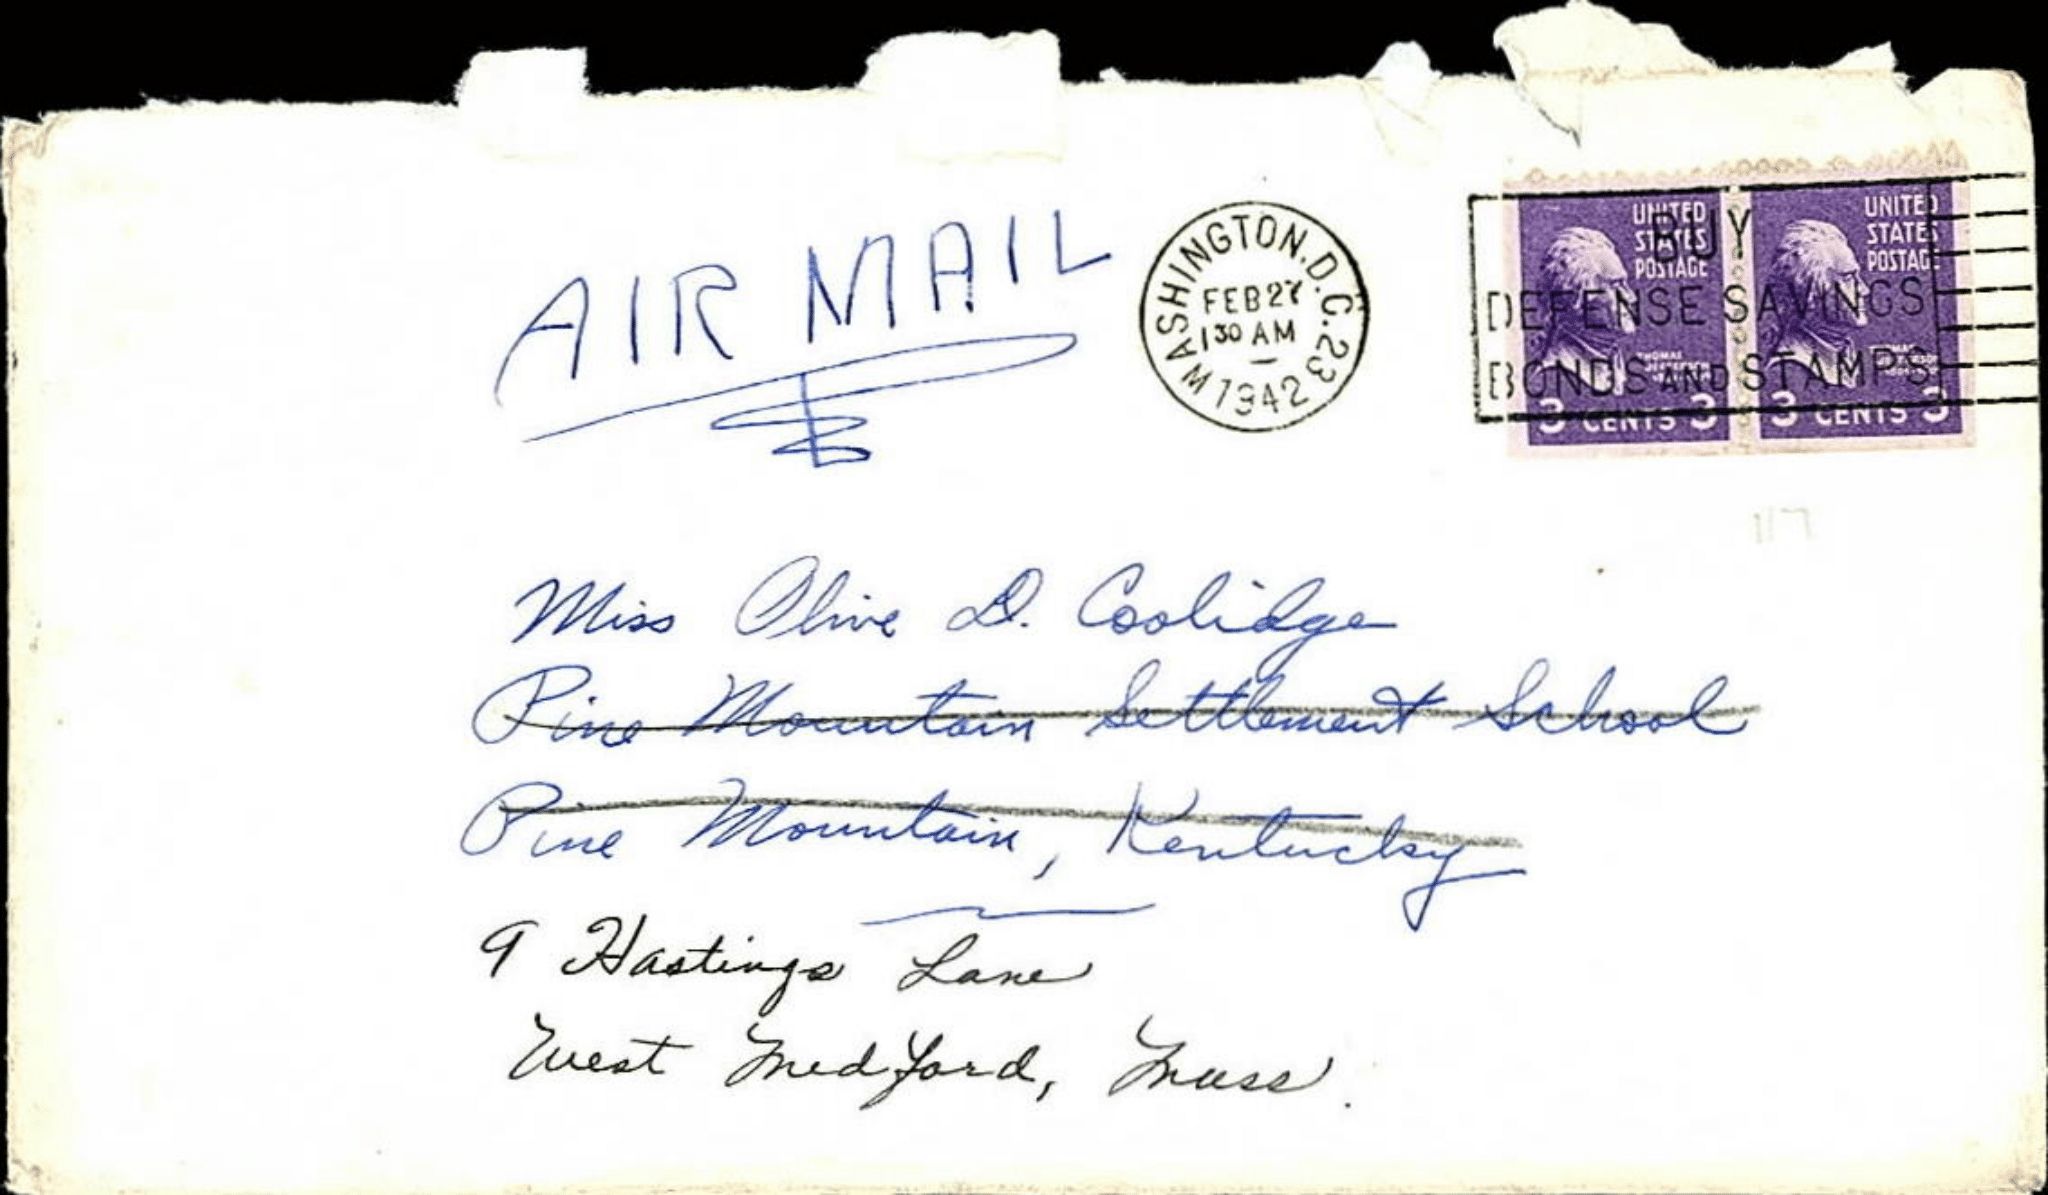 AIR MAIL
WASHINGTON, D.C. 23
FEB 27
1 30 AM
1942
BUY
DEFENSE SAVINGS
BONDS AND STAMPS
UNITED
STATES
POSTAGE
THOMAS
JEFFERSON
3 CENTS 3
UNITED
STATES
POSTAGE
THOMAS
JEFFERSON
3 CENTS 3
117
Miss Olive D. Coolidge
Pine Mountain Settlement School
Pine Mountain, Kentucky
9 Hastings Lane
West Medford, Mass.